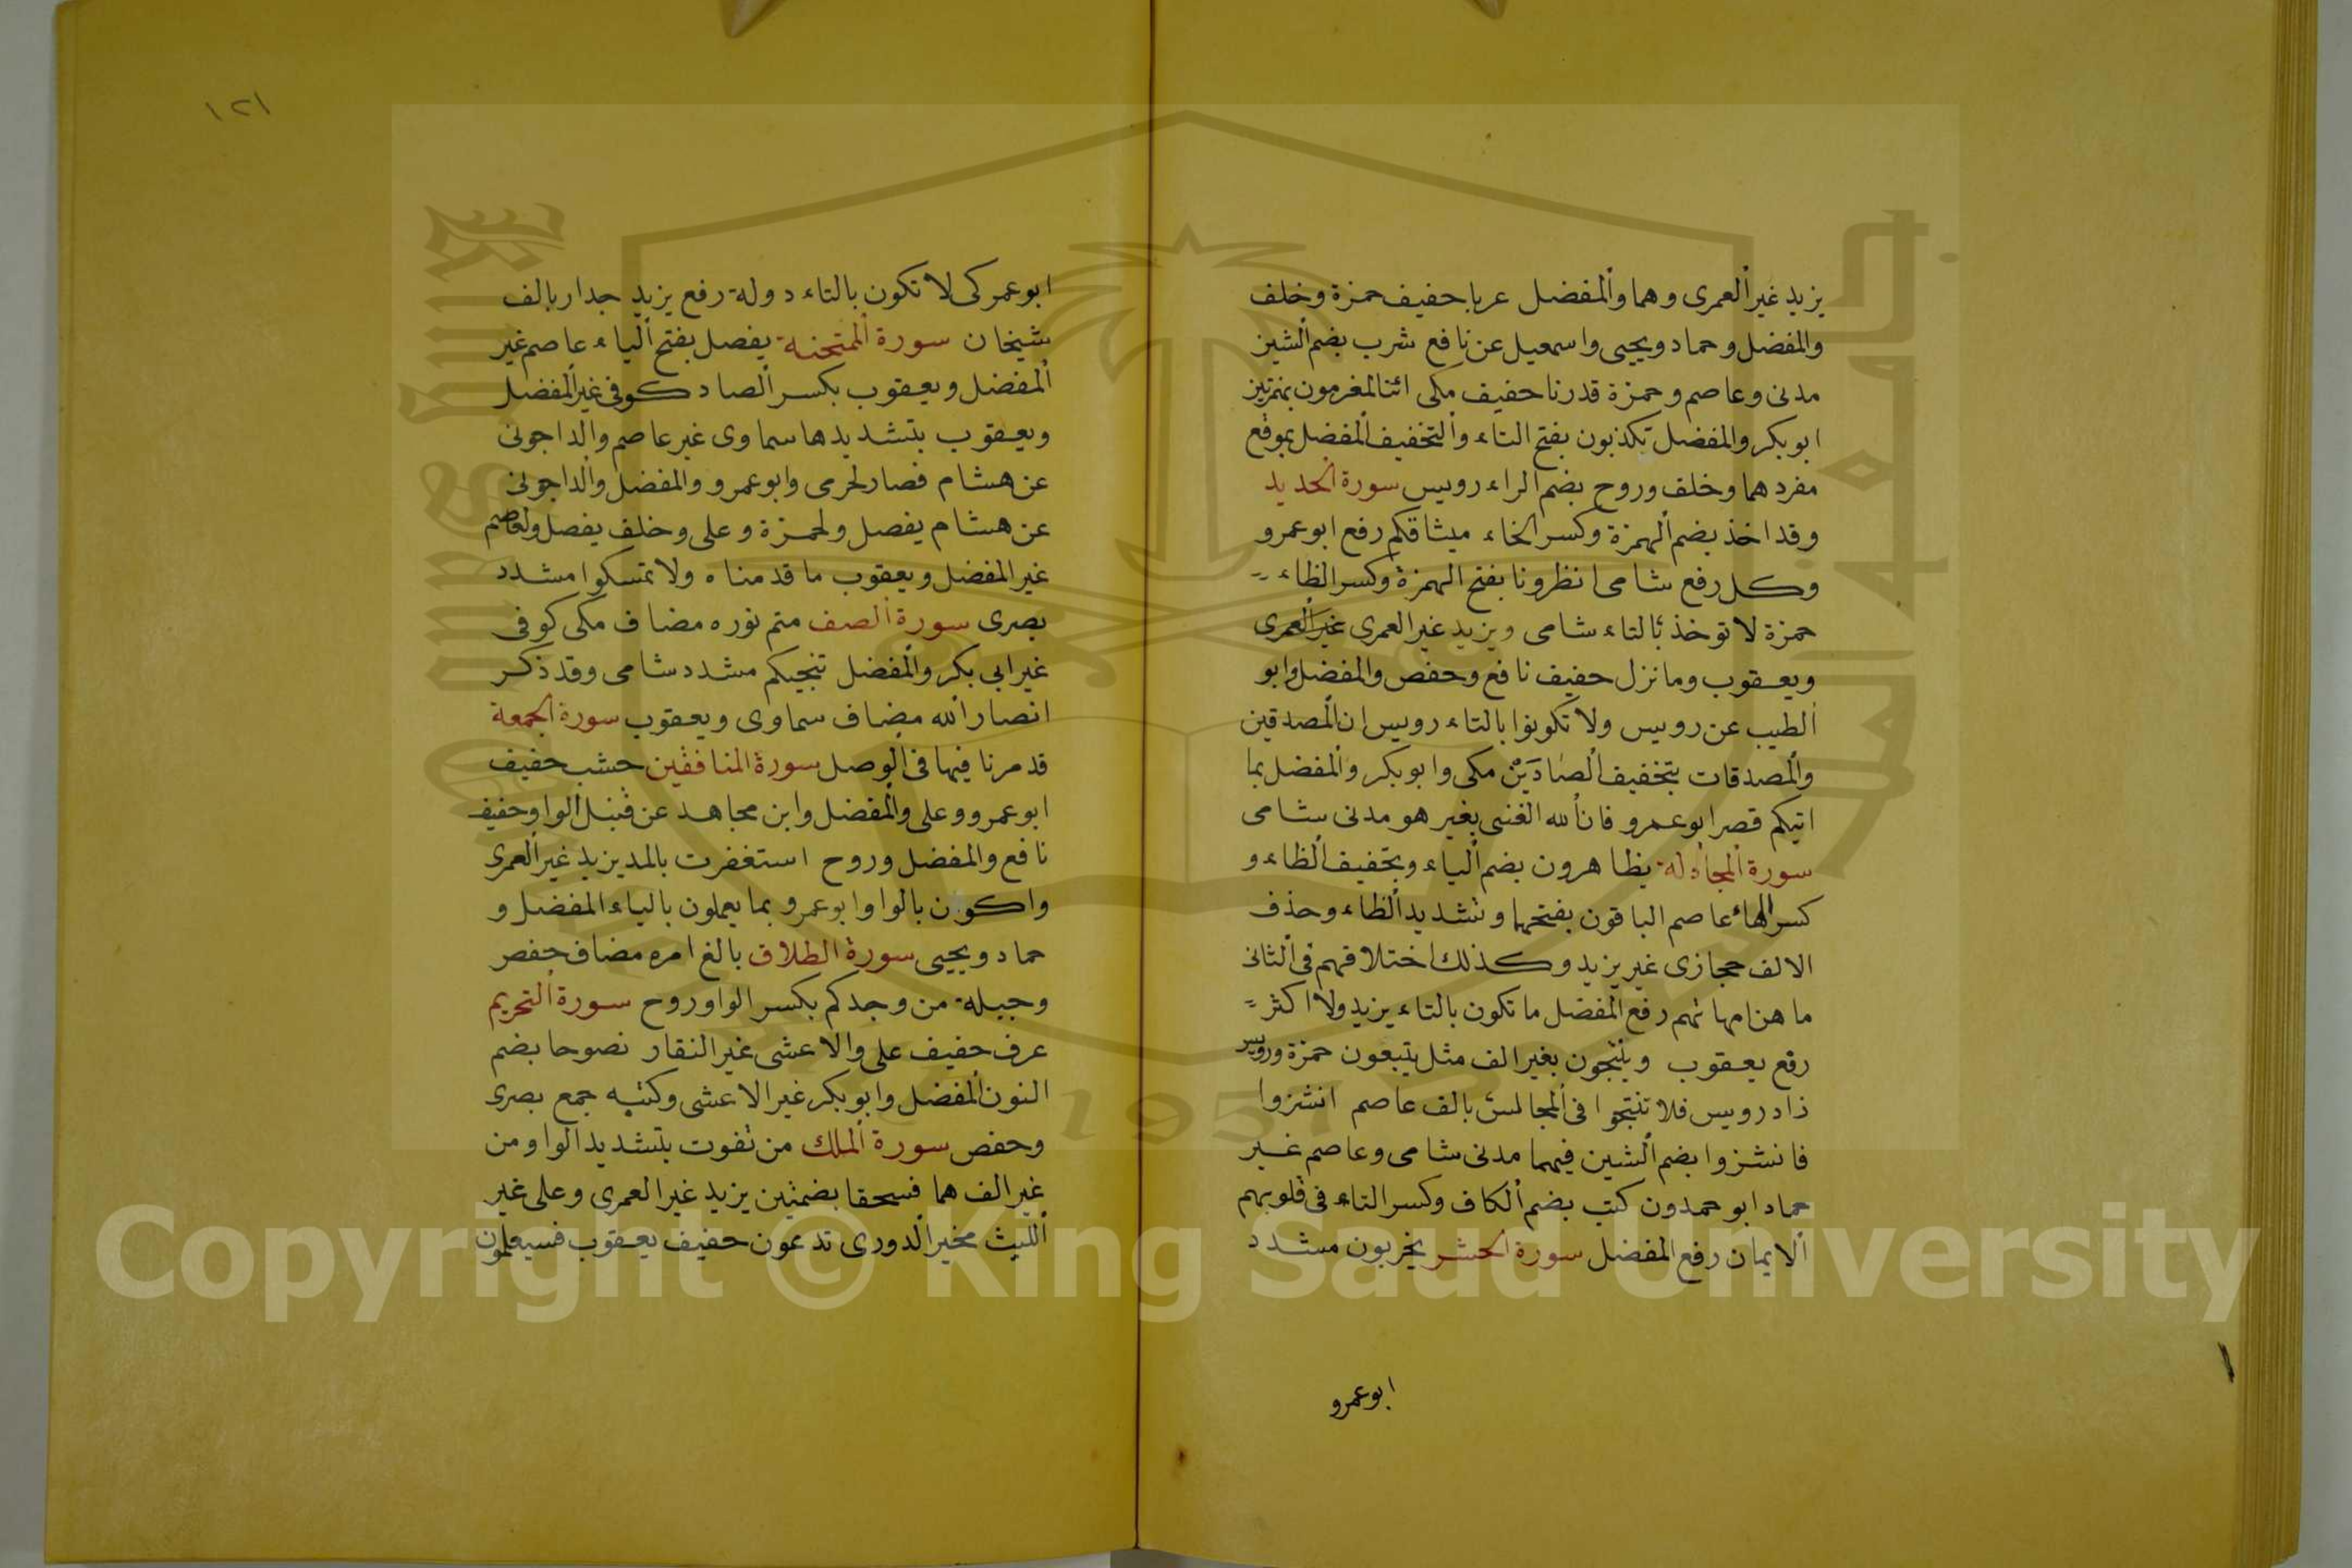 يزيد غير العمرى وهما والمفضل عربا خفيف حمزة وخلف
والمفضل وحماد ويحيى واسمعيل عن نافع شرب بضم الشين
مدنى وعاصم وحمزة قدرنا خفيف مكى ائنا لمغرمون بهمزتين
ابو بكر والمفضل تكذبون بفتح التاء والتخفيف المفضل بموقع
مفردهما وخلف وروح بضم الراء رويس سورة الحديد
وقد اخذ بضم الهمزة وكسر الخاء ميثاقكم رفع ابو عمرو
وكل رفع شامى انظرونا بفتح الهمزة وكسر الظاء
حمزة لا توخذ بالتاء شامى ويزيد غير العمرى غير العمرى
ويعقوب وما نزل خفيف نافع وحفص والمفضل وابو
الطيب عن رويس ولا تكونوا بالتاء رويس ان المصدقين
والمصدقات بتخفيف الصادين مكى وابو بكر والمفضل بما
اتيكم قصر ابو عمرو فان الله الغنى بغير هو مدنى شامى
سورة المجادلة يظاهرون بضم الياء وبتخفيف الظاء و
كسر الهاء عاصم الباقون بفتحها وتشديد الظاء وحذف
الالف حجازى غير يزيد وكذلك اختلافهم فى الثانى
ما هن امهاتهم رفع المفضل ما تكون بالتاء يزيد ولا اكثر
رفع يعقوب وينتجون بغير الف مثل يتبعون حمزة ورويس
زاد رويس فلا تنتجوا فى المجالس بالف عاصم انشزوا
فانشزوا بضم الشين فيهما مدنى شامى وعاصم غير
حماد ابو حمدون كتب بضم الكاف وكسر التاء فى قلوبهم
الايمان رفع المفضل سورة الحشر يخربون مشدد
ابو عمرو
١٢١
ابو عمر كى لا تكون بالتاء دولة رفع يزيد جدار بالف
شيخان سورة الممتحنة يفصل بفتح الياء عاصم غير
المفضل ويعقوب بكسر الصاد كوفى غير المفضل
ويعقوب بتشديدها سماوى غير عاصم والداجونى
عن هشام فصار لحرمى وابو عمرو والمفضل والداجونى
عن هشام يفصل ولحمزة وعلى وخلف يفصل ولعاصم
غير المفضل ويعقوب ما قدمناه ولا تمسكوا مشدد
بصرى سورة الصف متم نوره مضاف مكى كوفى
غير ابي بكر والمفضل تنجيكم مشدد شامى وقد ذكر
انصار الله مضاف سماوى ويعقوب سورة الجمعة
قد مرنا فيها فى الوصل سورة المنافقين خشب خفيف
ابو عمرو وعلى والمفضل وابن مجاهد عن قنبل لووا خفيف
نافع والمفضل وروح استغفرت بالمد يزيد غير العمرى
واكون بالواو ابو عمرو بما يعملون بالياء المفضل و
حماد ويحيى سورة الطلاق بالغ امره مضاف حفص
وجبلة من وجدكم بكسر الواو روح سورة التحريم
عرف خفيف على والاعشى غير النقار نصوحا بضم
النون المفضل وابو بكر غير الاعشى وكتبه جمع بصرى
وحفص سورة الملك من تفوت بتشديد الواو من
غير الف هما فسحقا بضمتين يزيد غير العمرى وعلى غير
الليث مخير الدورى تدعون خفيف يعقوب فسيعلمون
Copyright © King Saud University
1957